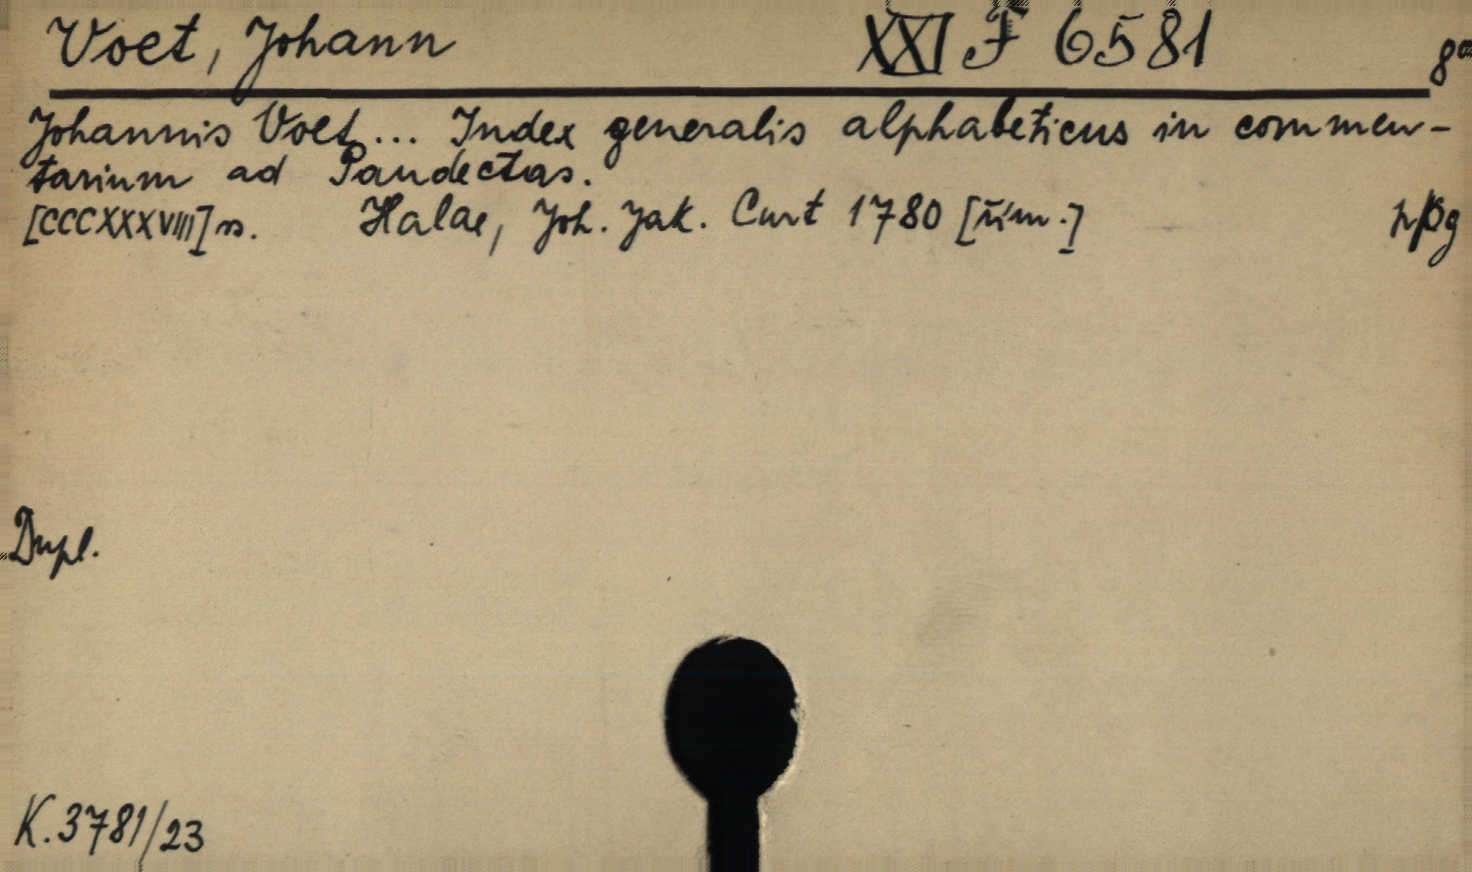 Voet, Johann XXI F 6581 8°
Johannis Voet... Index generalis alphabeticus in commen-
tarium ad Pandectas.
[CCCXXXVIII] s. Halae, Joh. Jak. Curt 1780 [řím.]
Dupl.
K.3781/23